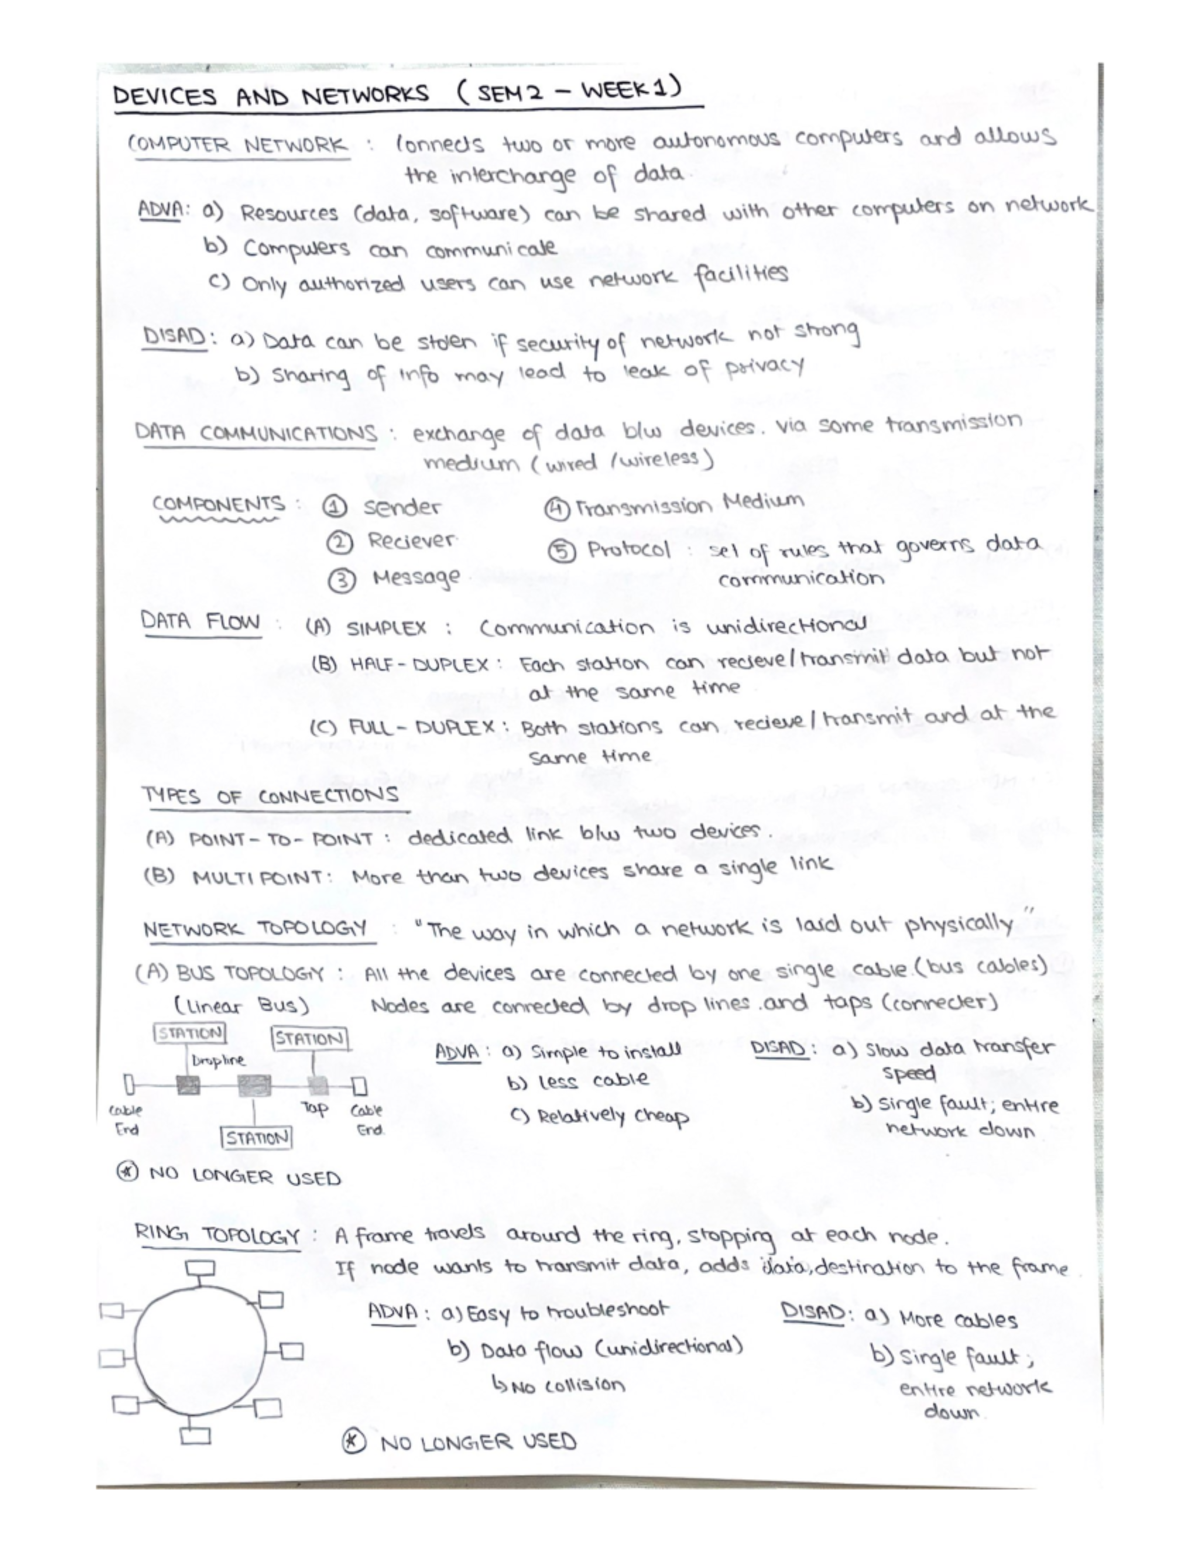 DEVICES AND NETWORKS (SEM 2 - WEEK 1)
COMPUTER NETWORK : Connects two or more autonomous computers and allows
the interchange of data.
ADVA: a) Resources (data, software) can be shared with other computers on network
b) Computers can communicate
c) Only authorized users can use network facilities
DISAD: a) Data can be stolen if security of network not strong
b) Sharing of info may lead to leak of privacy
DATA COMMUNICATIONS : exchange of data b/w devices. via some transmission
medium (wired /wireless)
COMPONENTS : ① Sender ④ Transmission Medium
② Reciever ⑤ Protocol : set of rules that governs data
③ Message communication
DATA FLOW : (A) SIMPLEX : Communication is unidirectional
(B) HALF-DUPLEX : Each station can recieve/transmit data but not
at the same time
(C) FULL-DUPLEX : Both stations can recieve/transmit and at the
same time
TYPES OF CONNECTIONS
(A) POINT-TO-POINT : dedicated link b/w two devices.
(B) MULTIPOINT: More than two devices share a single link
NETWORK TOPOLOGY : "The way in which a network is laid out physically"
(A) BUS TOPOLOGY : All the devices are connected by one single cable.(bus cables)
(Linear Bus) Nodes are connected by drop lines and taps (connecter)
STATION STATION ADVA : a) Simple to install DISAD : a) Slow data transfer
Dropline speed
b) less cable
Cable Tap Cable c) Relatively cheap b) Single fault; entire
End End network down
STATION
* NO LONGER USED
RING TOPOLOGY : A frame travels around the ring, stopping at each node.
If node wants to transmit data, adds data, destination to the frame.
ADVA : a) Easy to troubleshoot DISAD: a) More cables
b) Data flow (unidirectional) b) Single fault;
↳ No collision entire network
down
* NO LONGER USED